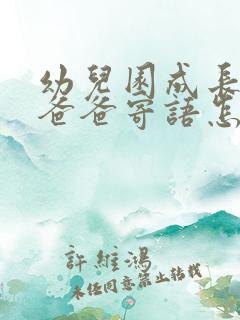 幼兒園成長
爸爸寄語怎
許維鴻
未經同意禁止转载